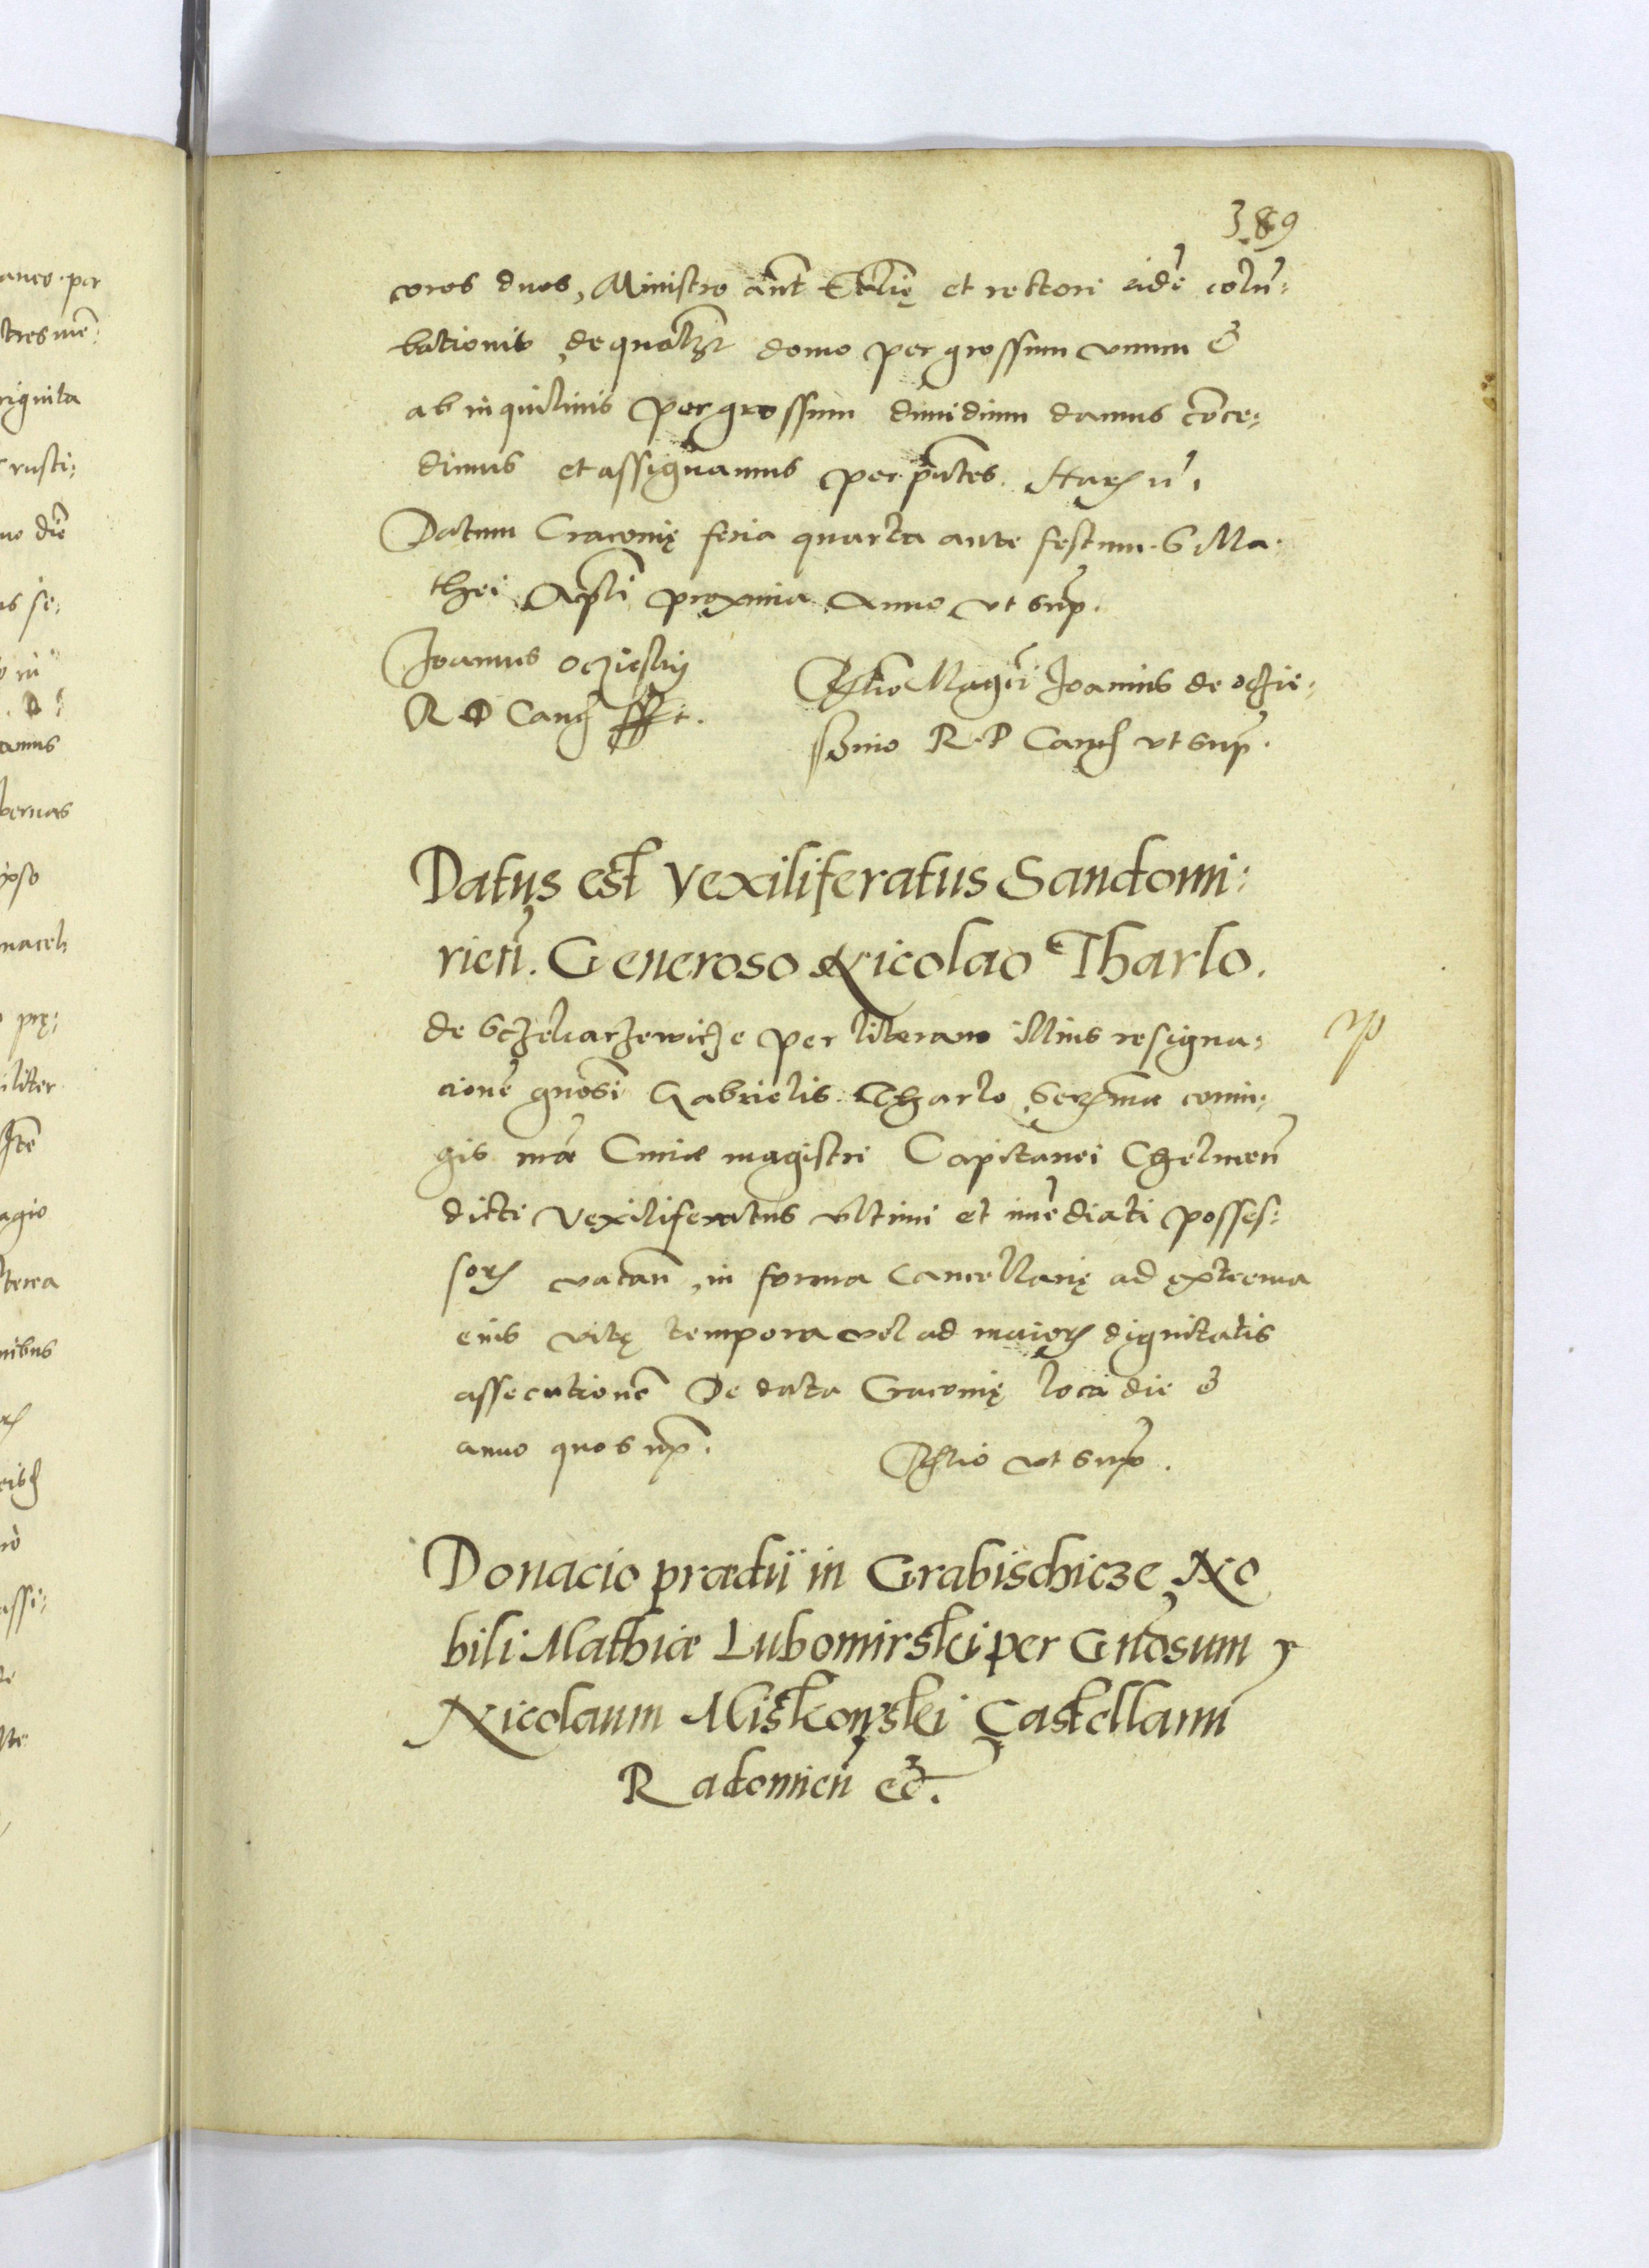 389
coros duos, Ministro aut Ecclię et rectori eidē colū:
bationis de qualibet domo per grossum unum &
ab inquilinis per grossum dimidium damus conce:
dimus et assignamus per pntes. Harꝝ
Datum Cracovię feria quarta ante festum S Ma:
thei Apli proxima Anno ut supr.
Joannes oczieski
R P Canc sst.
Rlio Magci Joannis de oczie:
ssino R. P Canc ut supr.
Datus est Vexiliferatus Sandomi:
rien. Generoso Nicolao Tharlo.
de Sczekarzewicze per literam illius resigna:
cionē gnosi Gabrielis Tharlo Serꝫma coniu:
gis nrae Curiae magistri Capitanei Chelmen
dicti Vexiliferatus ultimi et imediati posses:
soris vacan, in forma Cancellarię ad extrema
eius vitę tempora vel ad maioris dignitatis
assecutionē De data Cracovię loci die &
anno quo supr.
Rlio ut supr.
Donacio praedii in Grabischicze No
bili Mathiae Lubomirski per Gnosum
Nicolaum Miskowski Castellanū
Radomien ec.